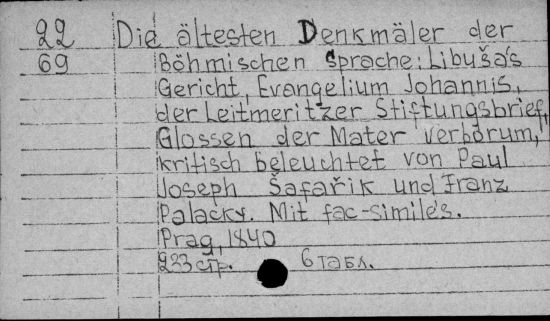 22 Die ältesten Denkmäler der
69 Böhmischen Sprache: Libuša's
Gericht, Evangelium Johannis,
der Leitmeritzer Stiftungsbrief,
Glossen der Mater verborum,
kritisch beleuchtet von Paul
Joseph Šafařik und Franz
Palacky. Mit fac-simile's.
Prag, 1840
233 стр. 6 табл.